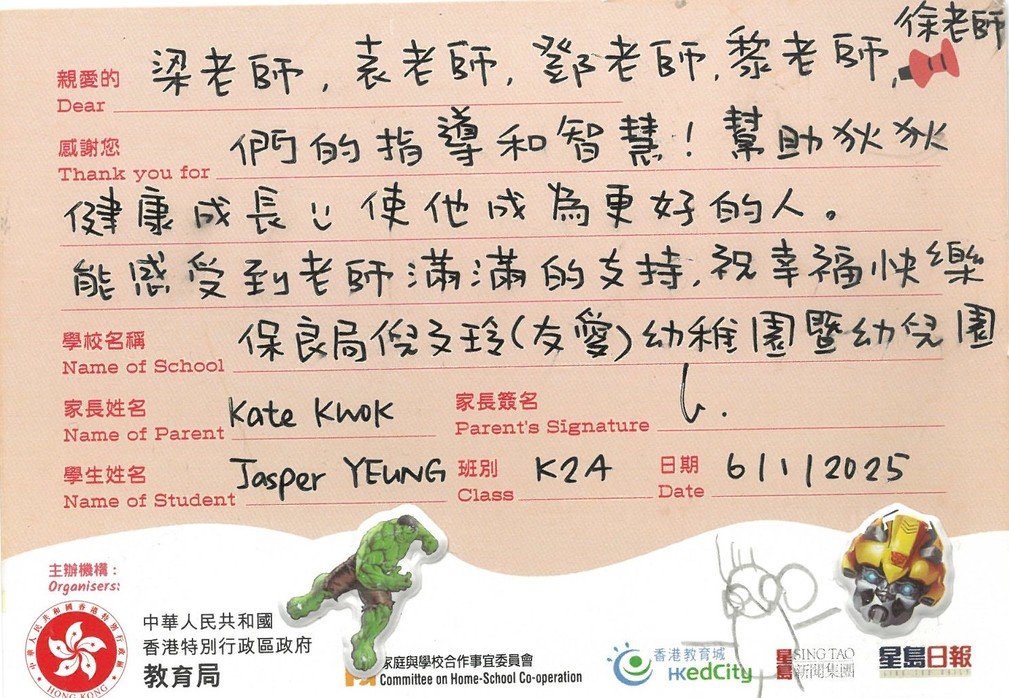 徐老師
親愛的 梁老師，袁老師，鄧老師，黎老師，
Dear
感謝您 們的指導和智慧！幫助狄狄
Thank you for
健康成長 使他成為更好的人。
能感受到老師滿滿的支持，祝幸福快樂
學校名稱 保良局倪文玲(友愛)幼稚園暨幼兒園
Name of School
家長姓名 Kate Kwok 家長簽名
Name of Parent Parent's Signature
學生姓名 Jasper YEUNG 班別 K2A 日期 6/1/2025
Name of Student Class Date
主辦機構：
Organisers:
中華人民共和國
香港特別行政區政府
教育局
中華人民共和國香港特別行政區
HONG KONG
家庭與學校合作事宜委員會
Committee on Home-School Co-operation
香港教育城
HKedCity
星島
SING TAO
新聞集團
星島日報
SING TAO DAILY